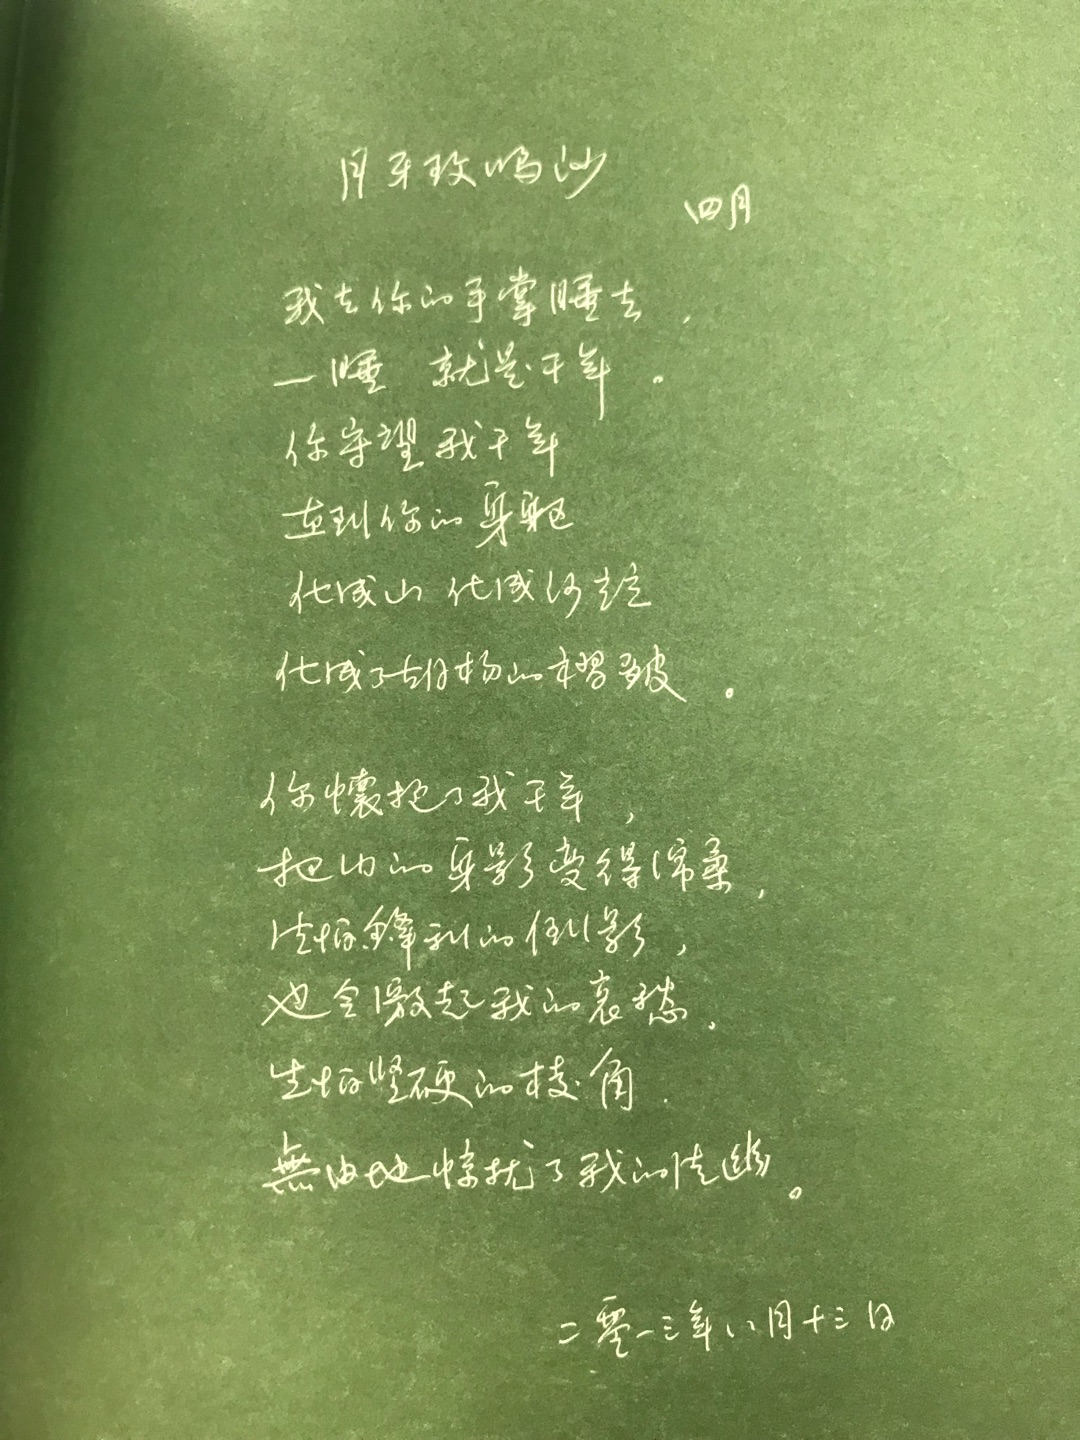 月牙玫鸣沙
四月
我在你的手掌睡去，
一睡 就是千年。
你守望我千年
直到你的身躯
化成山 化成河
化成了胡杨的褶皱。
你懷抱了我千年，
把你的身影变得柔，
生怕鋒利的倒影，
也会激起我的哀愁，
生怕坚硬的棱角.
無由地惊扰了我的
二零一三年八月十三日